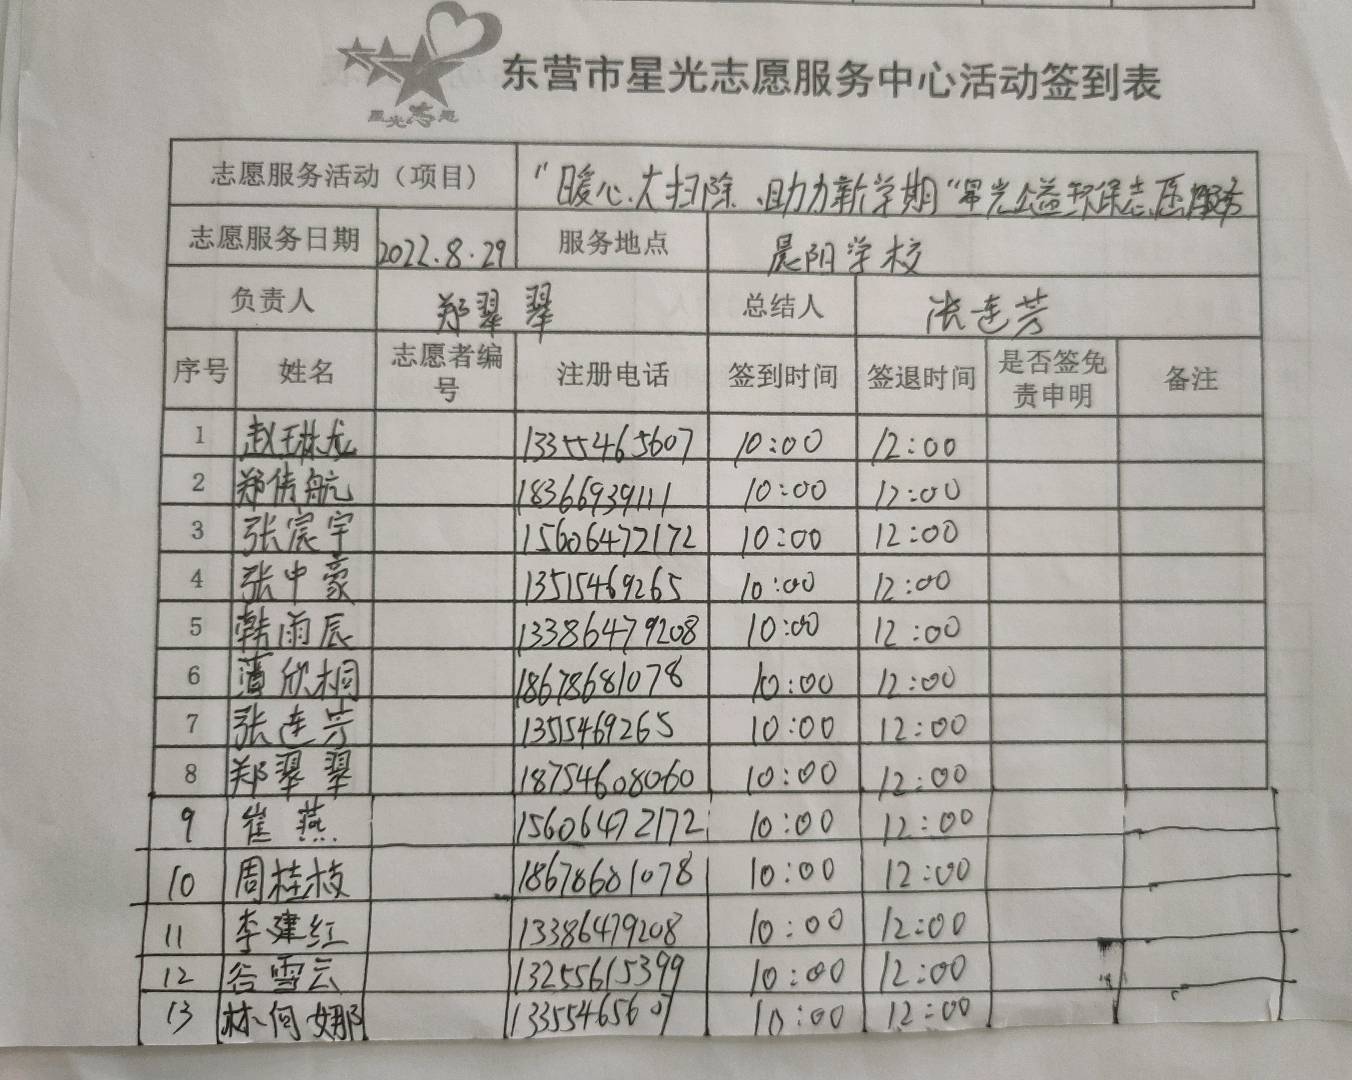 星光志愿
东营市星光志愿服务中心活动签到表
志愿服务活动（项目） "暖心大扫除、助力新学期"星光公益环保志愿服务
志愿服务日期 2022.8.29 服务地点 晨阳学校
负责人 郑翠翠 总结人 张连芳
序号 姓名 志愿者编号 注册电话 签到时间 签退时间 是否签免责申明 备注
1 赵琳龙 13355465607 10:00 12:00
2 郑倩航 18366939111 10:00 12:00
3 张宸宇 15606472172 10:00 12:00
4 张中豪 13515469265 10:00 12:00
5 韩雨辰 13386479208 10:00 12:00
6 潘欣桐 18678681078 10:00 12:00
7 张连芳 13515469265 10:00 12:00
8 郑翠翠 18754608060 10:00 12:00
9 崔燕 15606472172 10:00 12:00
10 周桂枝 18678681078 10:00 12:00
11 李建红 13386479208 10:00 12:00
12 谷雪云 13255615399 10:00 12:00
13 林何娜 13355465607 10:00 12:00